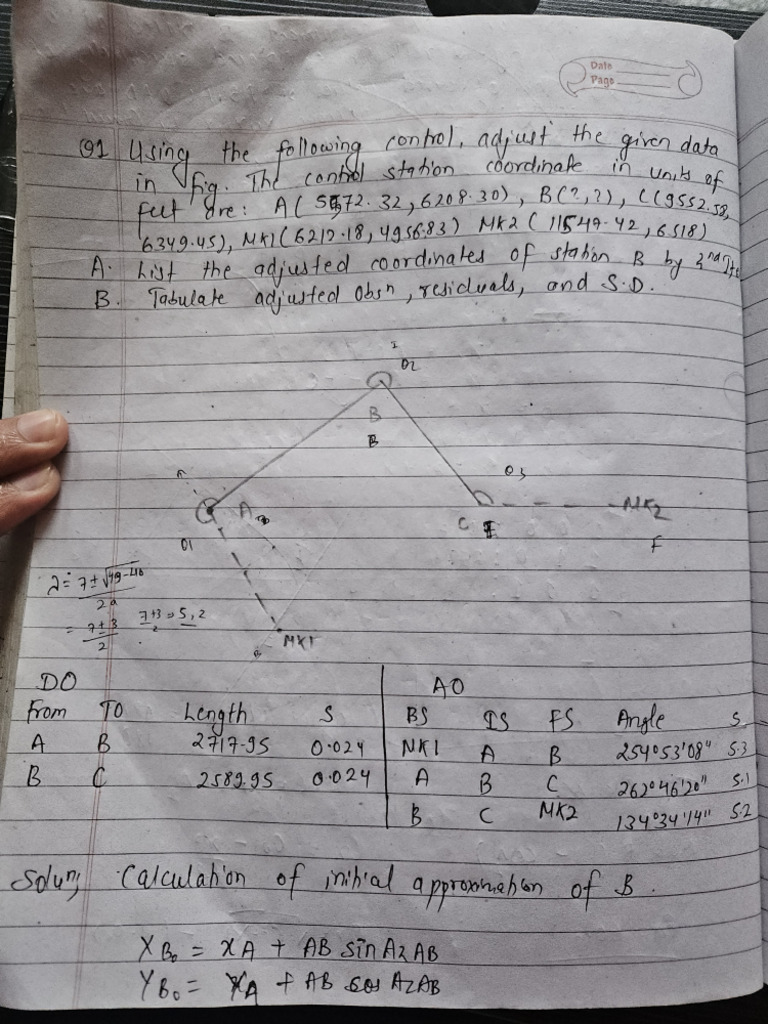 Date
Page
Q1 Using the following control, adjust the given data
in fig. The control station coordinate in units of
feet are: A( 5572.32, 6208.30), B(?,?), C(9552.58,
6349.45), MK1(6212.18, 4956.83) MK2 (11547.42, 6518)
A. List the adjusted coordinates of station B by 2nd Ite
B. Tabulate adjusted obsn, residuals, and S.D.
I
θ2
B
B
θ3
A
θ1
C
MK2
F
MK1
B
λ = 7±√49-40
2a
= 7±3
2
7+3 => 5, 2
2
DO
From TO Length S
A B 2717.95 0.024
B C 2589.95 0.024
AO
BS IS FS Angle S
MK1 A B 254°53'08" 5.3
A B C 262°46'20" 5.1
B C MK2 134°34'14" 5.2
Solun, Calculation of initial approximation of B.
XB0 = XA + AB sin AZAB
YB0 = YA + AB cos AZAB